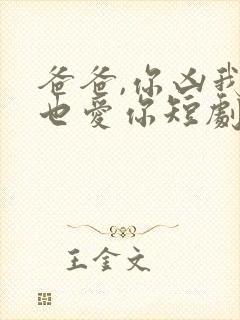 爸爸,你凶我
也爱你短劇
王金文